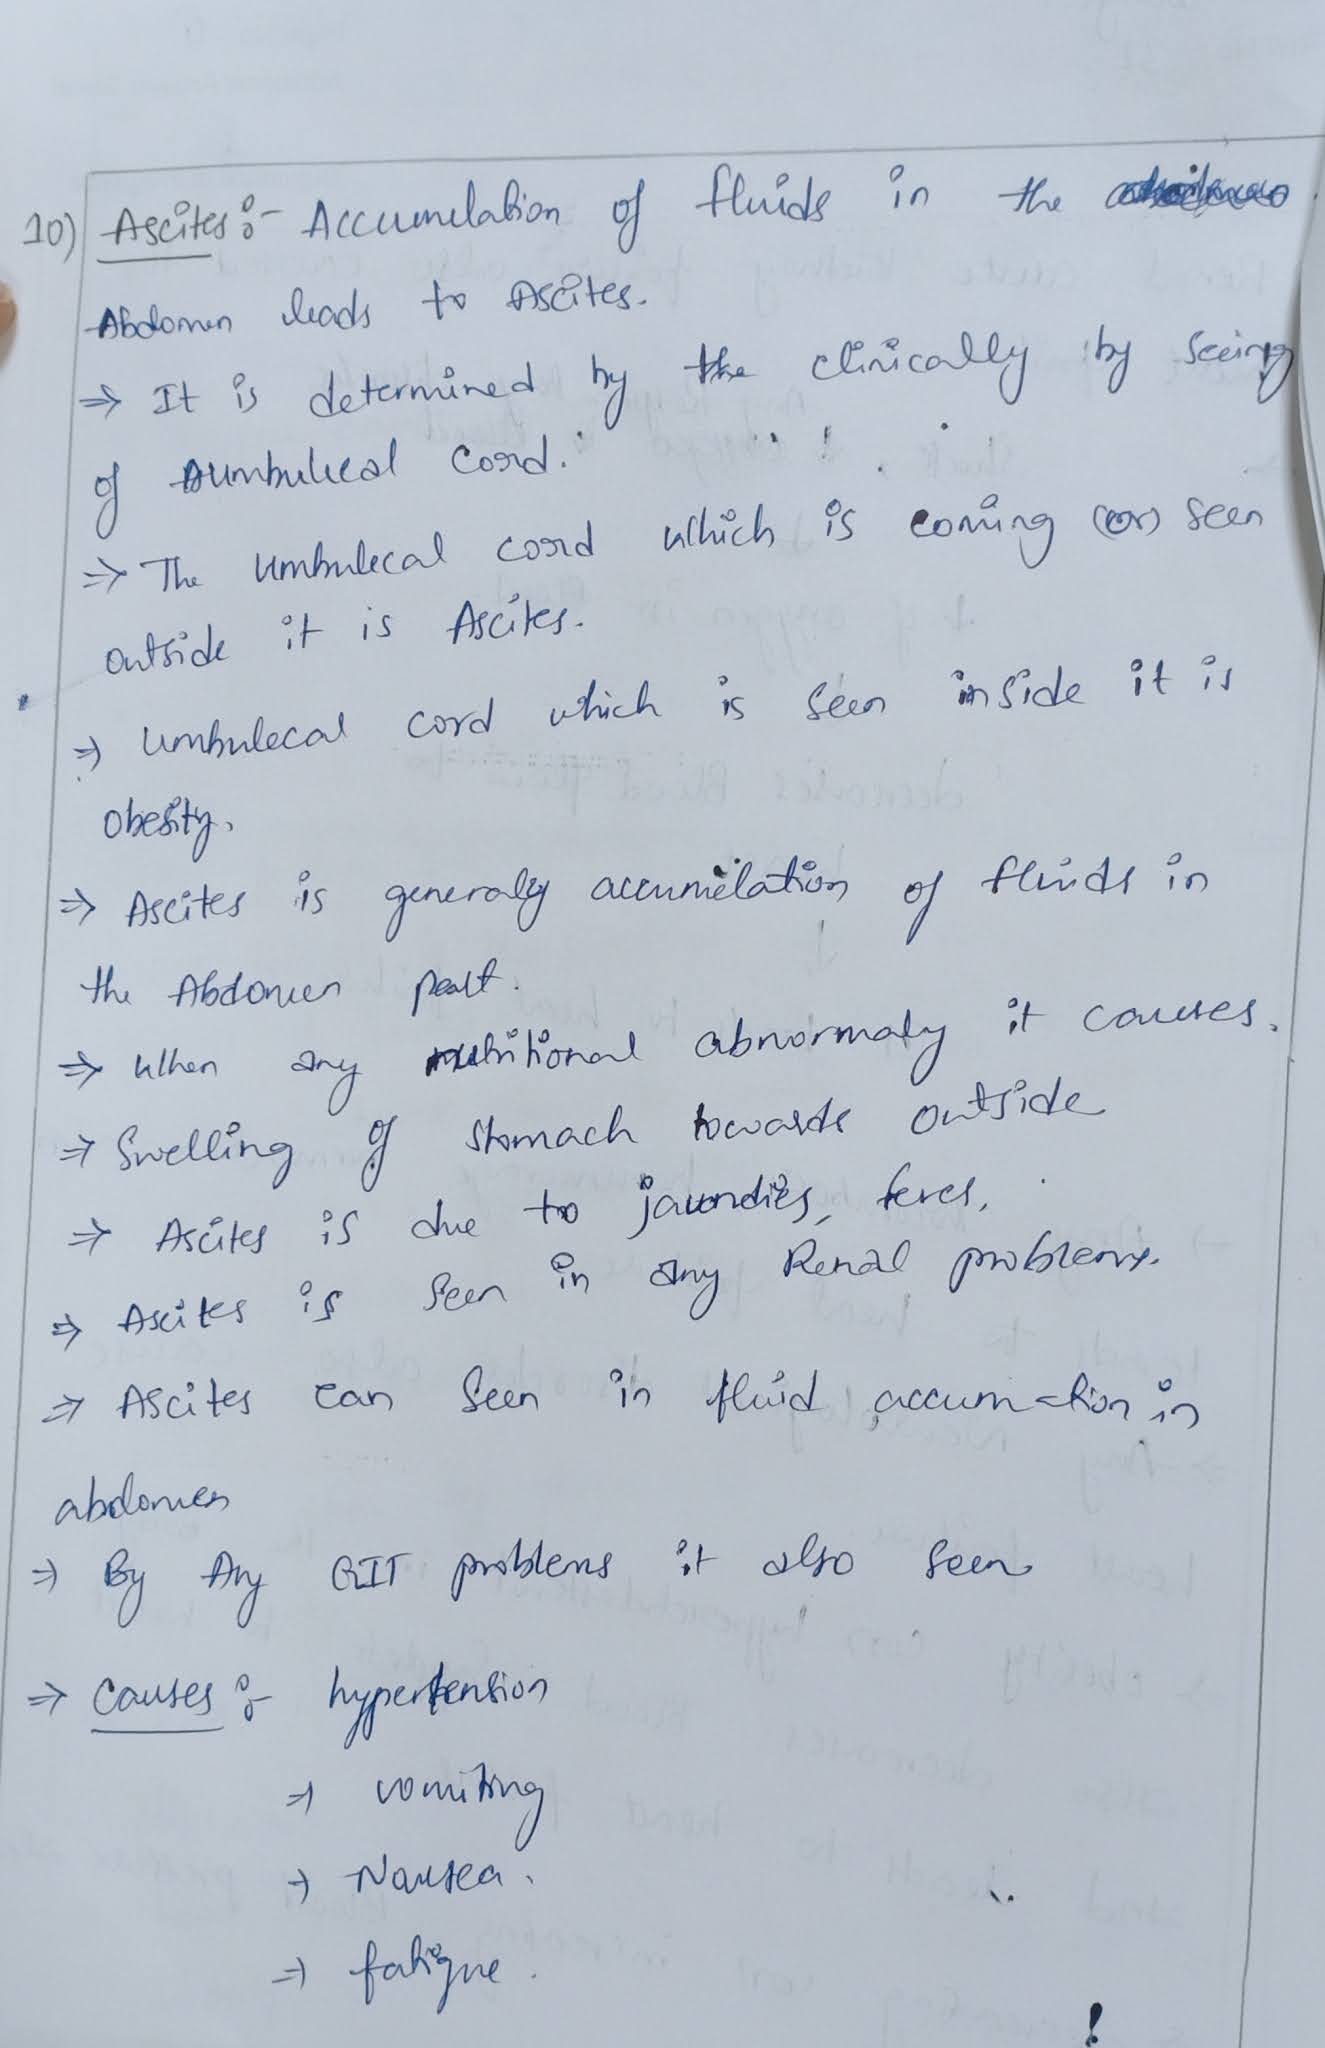 10) Ascites :- Accumulation of fluids in the
Abdomen leads to Ascites.
⇒ It is determined by the clinically by seeing
of umbulical cord.
⇒ The umbulecal cord which is coming (or) seen
outside it is Ascites.
⇒ Umbulecal cord which is seen inside it is
obesity.
⇒ Ascites is generaly accumelation of fluids in
the Abdomen part.
⇒ When any nutritional abnormaly it causes.
⇒ Swelling of stomach towards outside
⇒ Ascites is due to jaundies, fever,
⇒ Ascites is seen in any Renal problems.
⇒ Ascites can seen in fluid accumation in
abdomen
⇒ By Any GIT problems it also seen
⇒ Causes :- hypertension
⇒ vomiting
⇒ Nausea.
⇒ fatigue.